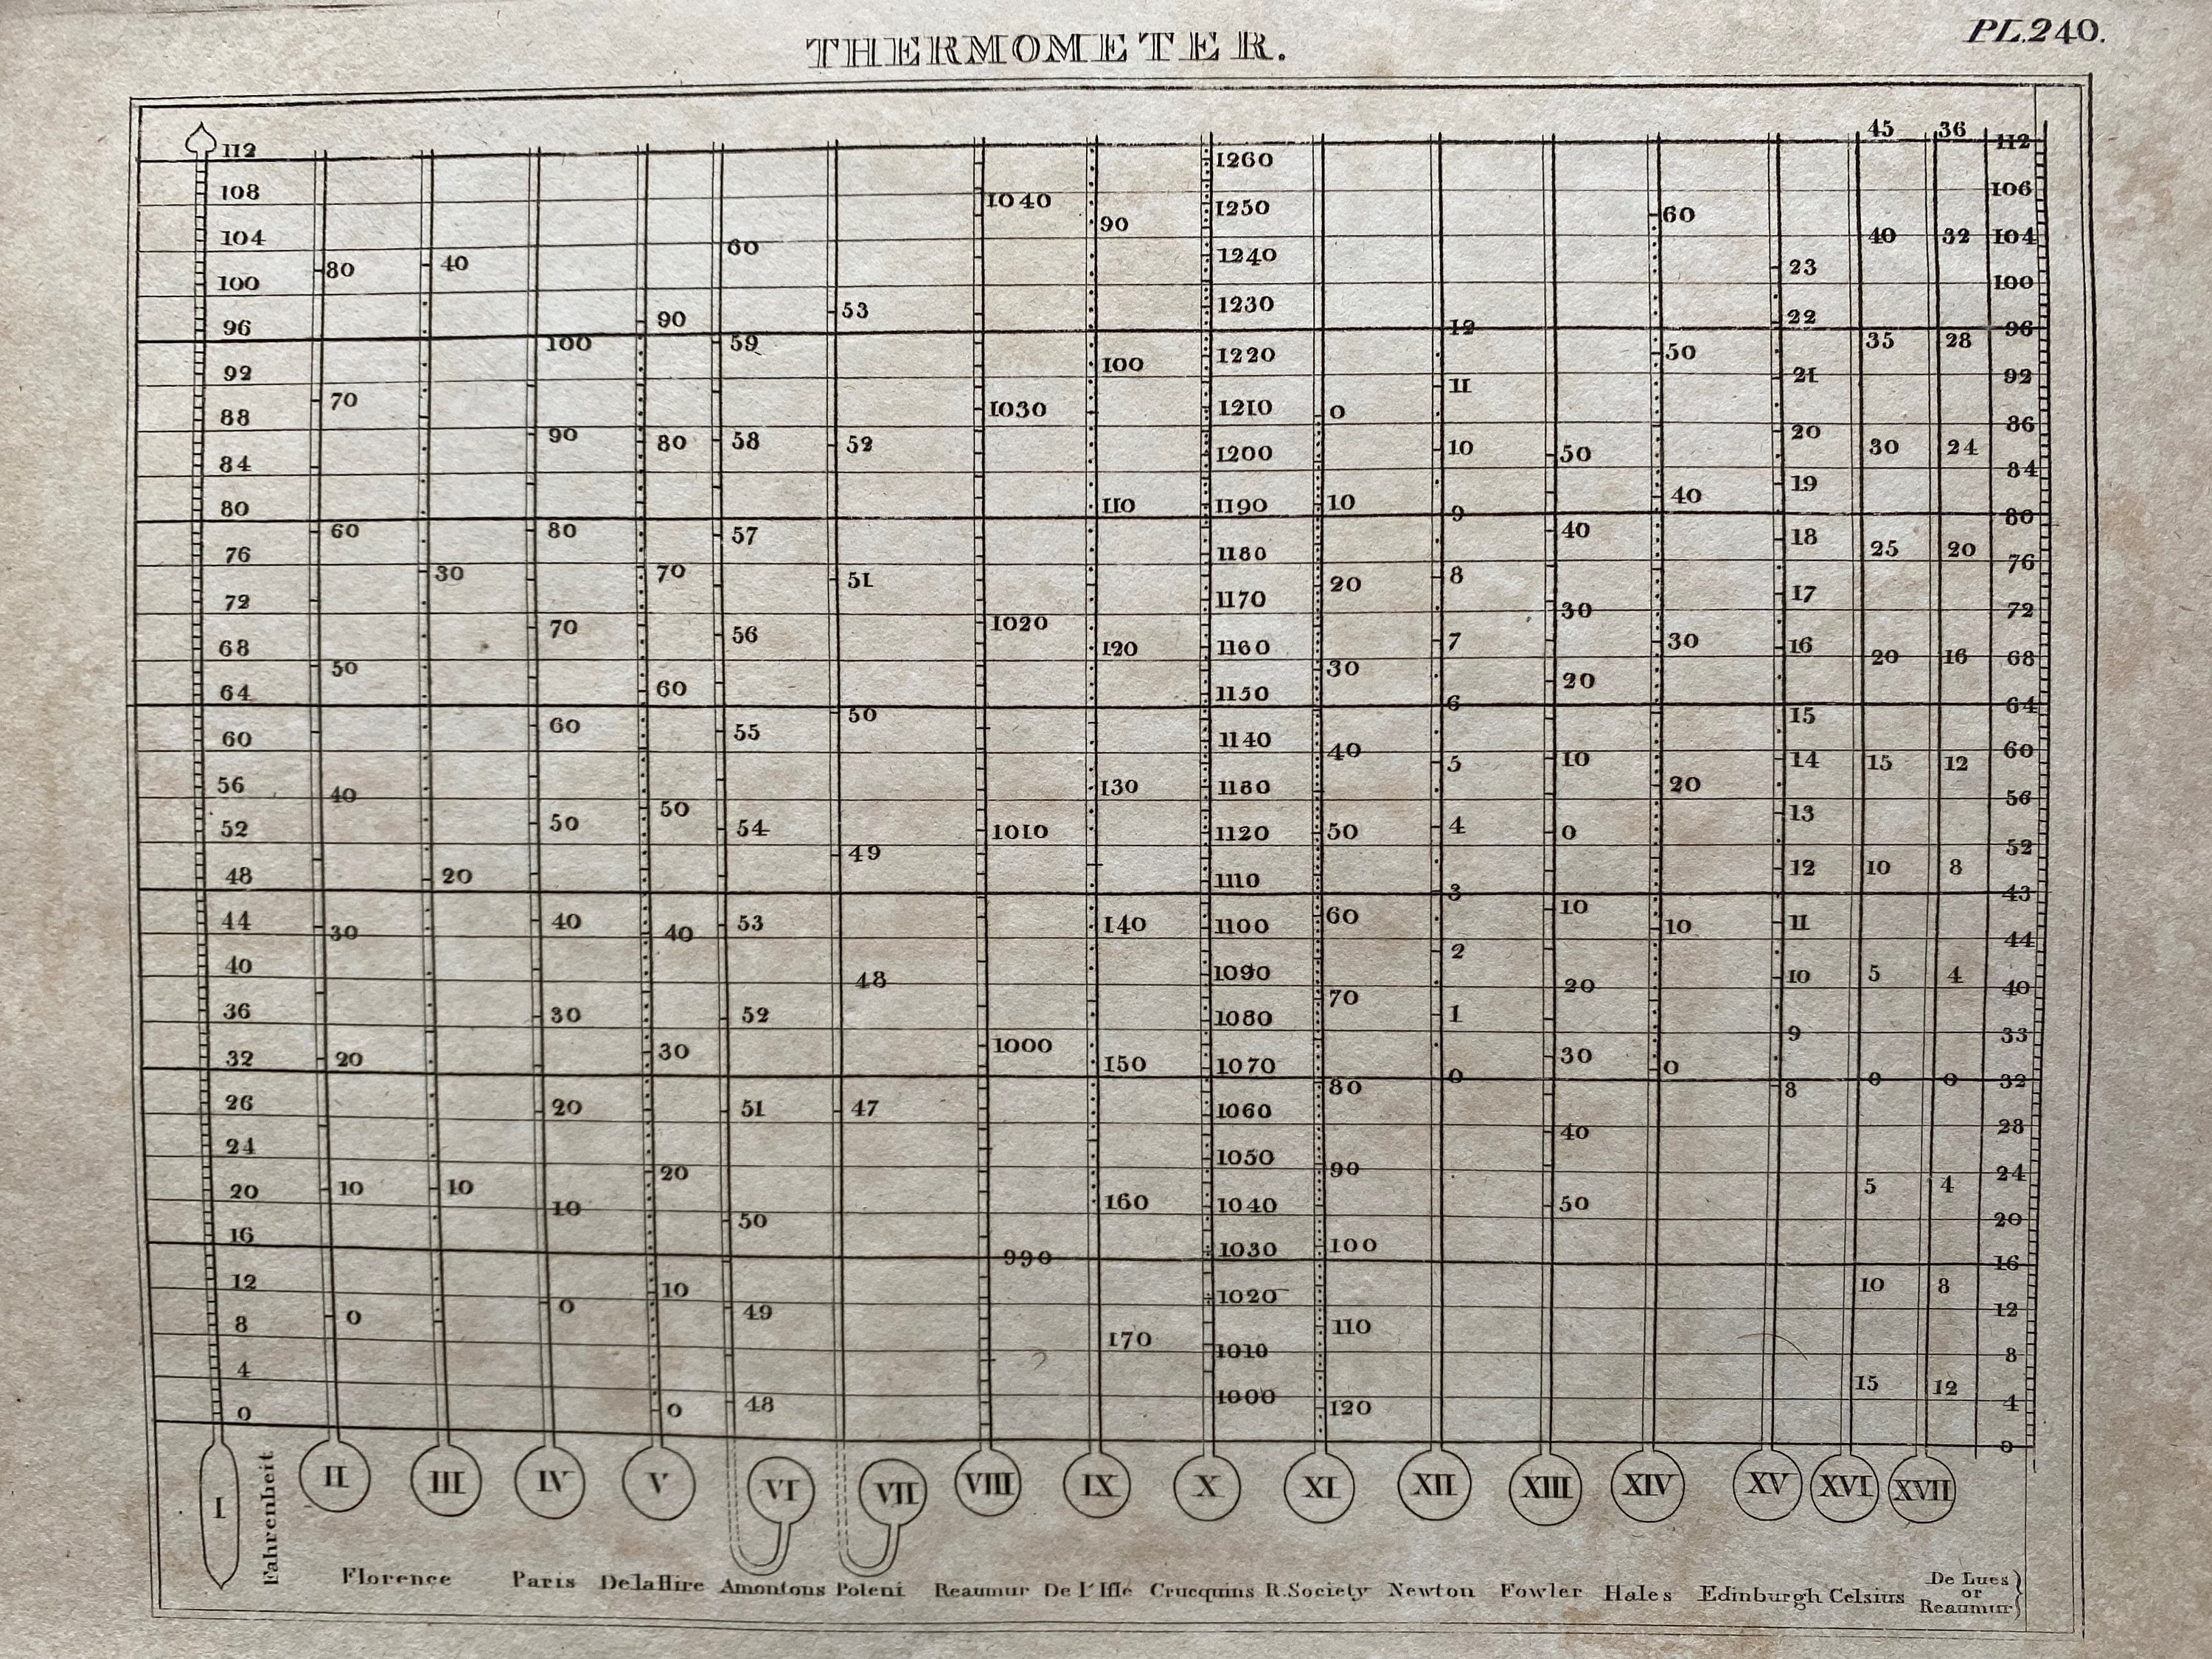 THERMOMETER.
PL.240.
112 108 104 100 96 92 88 84 80 76 72 68 64 60 56 52 48 44 40 36 32 26 24 20 16 12 8 4 0
80 70 60 50 40 30 20 10 0
40 30 20 10
100 90 80 70 60 50 40 30 20 10 0
90 80 70 60 50 40 30 20 10 0
60 59 58 57 56 55 54 53 52 51 50 49 48
53 52 51 50 49 48 47
1040 1030 1020 1010 1000 990
90 100 110 120 130 140 150 160 170
1260 1250 1240 1230 1220 1210 1200 1190 1180 1170 1160 1150 1140 1180 1120 1110 1100 1090 1080 1070 1060 1050 1040 1030 1020 1010 1000
0 10 20 30 40 50 60 70 80 90 100 110 120
12 11 10 9 8 7 6 5 4 3 2 1 0
50 40 30 20 10 0 10 20 30 40 50
60 50 40 30 20 10 0
23 22 21 20 19 18 17 16 15 14 13 12 11 10 9 8
45 40 35 30 25 20 15 10 5 0 5 10 15
36 32 28 24 20 16 12 8 4 0 4 8 12
112 106 104 100 96 92 86 84 80 76 72 68 64 60 56 52 43 44 40 33 32 28 24 20 16 12 8 4 0
I II III IV V VI VII VIII IX X XI XII XIII XIV XV XVI XVII
Fahrenheit
Florence
Paris
DelaHire
Amontons
Poleni
Reaumur
De L'Isle
Crucquins
R.Society
Newton
Fowler
Hales
Edinburgh
Celsius
De Lues
or
Reaumur